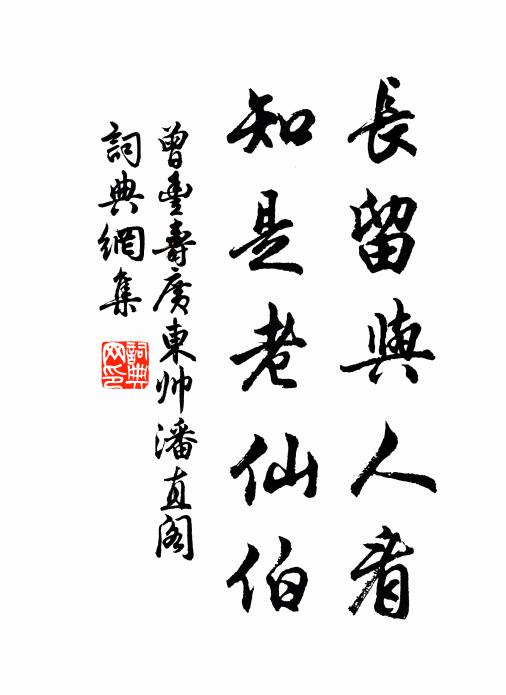 長留與人看
知是老仙伯
曾豐壽廣東帥潘直閣
詞典網集
詞典網印